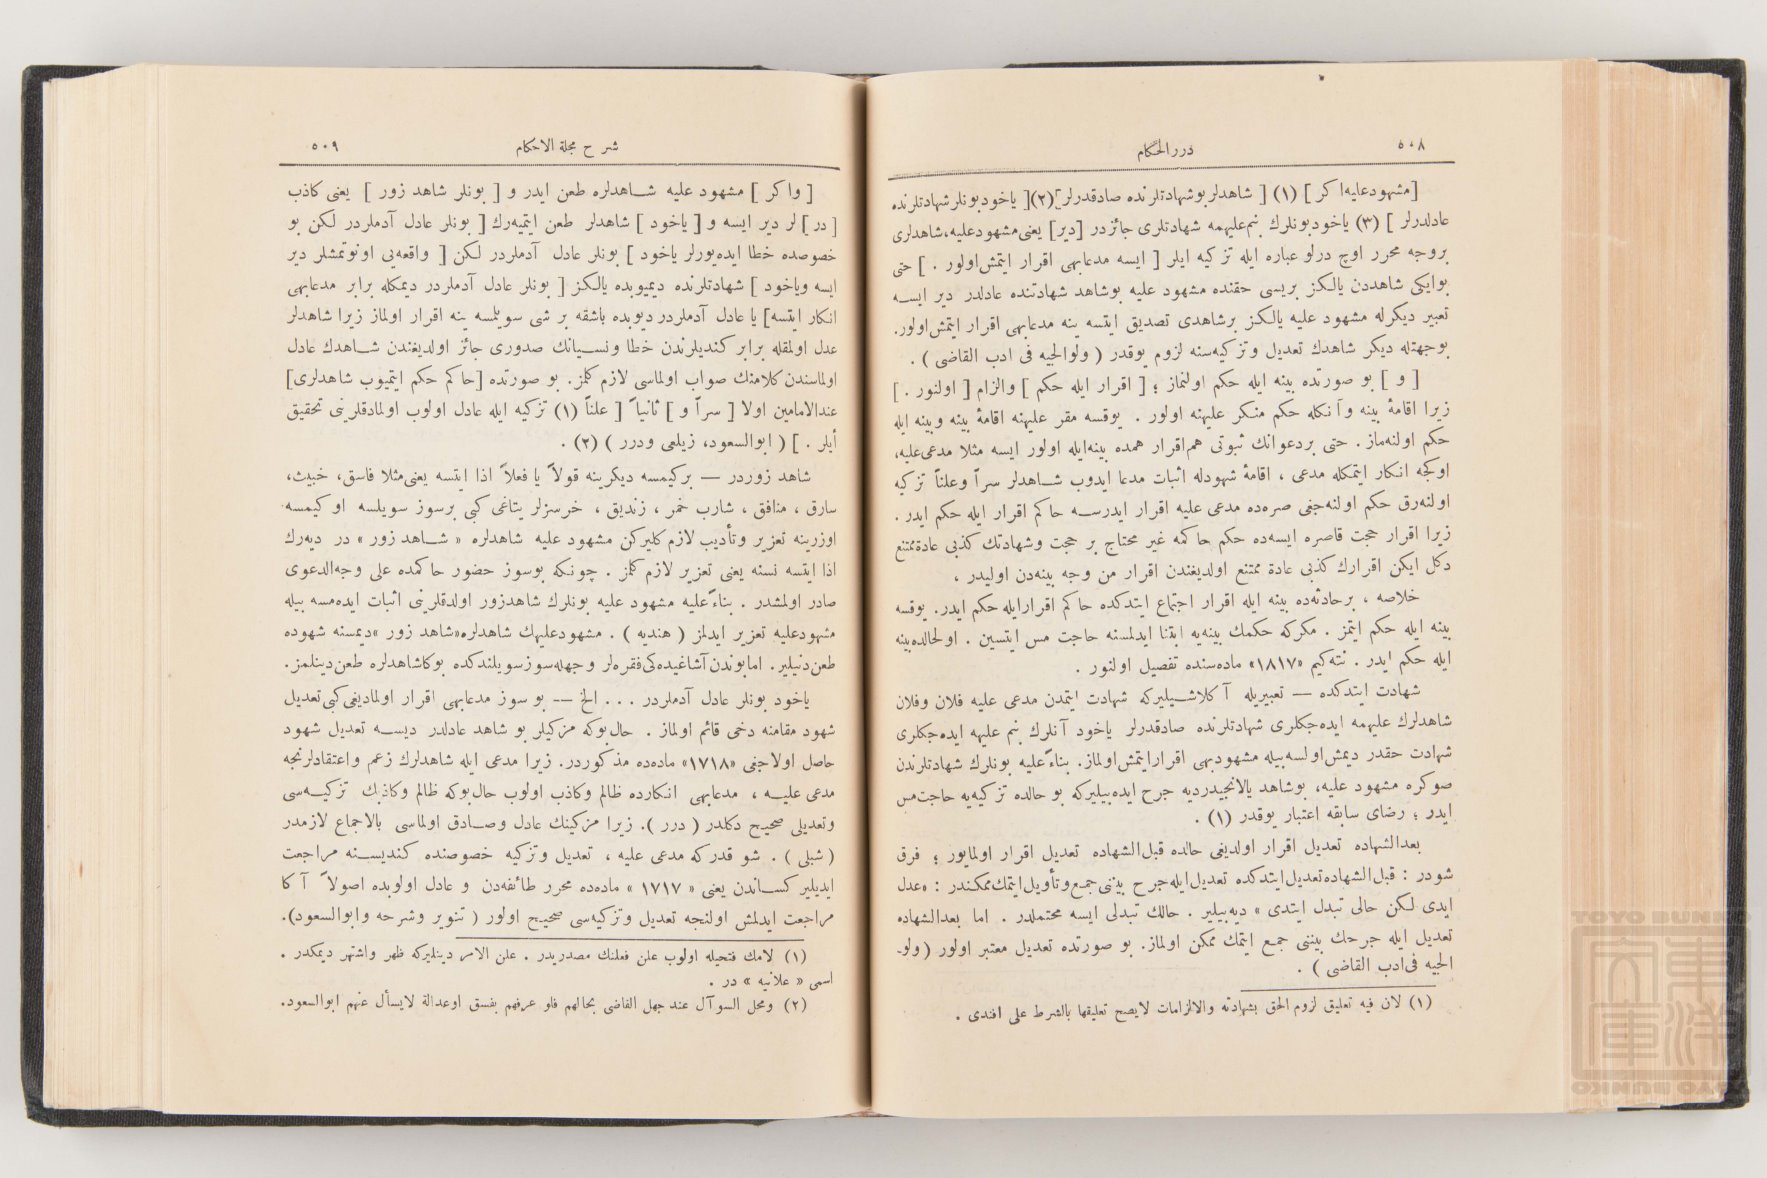 ٥٠٨
دررالحكام
[مشهودعليه اكر] (١) [ شاهدلر بوشهادتلرنده صادقدرلر] (٢) [ ياخود بونلر شهادتلرنده
عادلدرلر ] (٣) ياخود بونلرك بنم عليهمه شهادتلرى جائزدر [دير] يعنى مشهود عليه، شاهدلرى
بروجه محرر اوچ درلو عباره ايله تزكيه ايلر [ ايسه مدعابهى اقرار ايتمش اولور . ] حتى
بوايكى شاهددن يالكز بريسى حقنده مشهود عليه بوشاهد شهادتنده عادلدر دير ايسه
تعبير ديكرله مشهود عليه يالكز برشاهدى تصديق ايتسه ينه مدعابهى اقرار ايتمش اولور.
بوجهتله ديكر شاهدك تعديل وتزكيه سنه لزوم يوقدر ( ولوالجيه فى ادب القاضى ) .
[ و ] بو صورتده بينه ايله حكم اولنماز ؛ [ اقرار ايله حكم ] والزام [ اولنور . ]
زيرا اقامهٔ بينه وآنكله حكم منكر عليهنه اولور . يوقسه مقر عليهنه اقامهٔ بينه وبينه ايله
حكم اولنه ماز . حتى بردعوانك ثبوتى هم اقرار همده بينه ايله اولور ايسه مثلا مدعى عليه،
اوكجه انكار ايتمكله مدعى ، اقامهٔ شهودله اثبات مدعا ايدوب شاهدلر سراً وعلناً تزكيه
اولنه رق حكم اولنه جغى صره ده مدعى عليه اقرار ايدرسه حاكم اقرار ايله حكم ايدر .
زيرا اقرار حجت قاصره ايسه ده حكم حاكمه غير محتاج بر حجت وشهادتك كذبى عادة ممتنع
دكل ايكن اقرارك كذبى عادة ممتنع اولديغندن اقرار من وجه بينه دن اوليدر ،
خلاصه ، برحادثه ده بينه ايله اقرار اجتماع ايتدكده حاكم اقرار ايله حكم ايدر. يوقسه
بينه ايله حكم ايتمز . مكركه حكمك بينه يه ابتنا ايدلمسنه حاجت مس ايتسين . اولحالده بينه
ايله حكم ايدر . نته كيم «١٨١٧» ماده سنده تفصيل اولنور .
شهادت ايتدكده — تعبيريله آكلاشيليركه شهادت ايتمدن مدعى عليه فلان وفلان
شاهدلرك عليهمه ايده جكلرى شهادتلرنده صادقدرلر ياخود آنلرك بنم عليهه ايده جكلرى
شهادت حقدر ديمش اولسه بيله مشهود بهى اقرار ايتمش اولماز. بناءً عليه بونلرك شهادتلرندن
صوكره مشهود عليه، بوشاهد يالانجيدر ديه جرح ايده بيليركه بو حالده تزكيه يه حاجت مس
ايدر ؛ رضاى سابقه اعتبار يوقدر (١) .
بعدالشهاده تعديل اقرار اولديغى حالده قبل الشهاده تعديل اقرار اولمايور ؛ فرق
شودر : قبل الشهاده تعديل ايتدكده تعديل ايله جرح بيننى جمع وتأويل ايتمك ممكندر : «عدل
ايدى لكن حالى تبدل ايتدى » ديه بيلير . حالك تبدلى ايسه محتملدر . اما بعدالشهاده
تعديل ايله جرحك بيننى جمع ايتمك ممكن اولماز. بو صورتده تعديل معتبر اولور (ولو-
الجيه فى ادب القاضى ) .
(١) لان فيه تعليق لزوم الحق بشهادته والالزامات لايصح تعليقها بالشرط على افندى .
شرح مجلة الاحكام
٥٠٩
[ واكر ] مشهود عليه شاهدلره طعن ايدر و [ بونلر شاهد زور ] يعنى كاذب
[ در ] لر دير ايسه و [ ياخود ] شاهدلر طعن ايتميه رك [ بونلر عادل آدملردر لكن بو
خصوصده خطا ايده يورلر ياخود ] بونلر عادل آدملردر لكن [ واقعه يى اونوتمشلر دير
ايسه وياخود ] شهادتلرنده ديميوبده يالكز [ بونلر عادل آدملردر ديمكله برابر مدعابهى
انكار ايتسه] يا عادل آدملردر ديوبده باشقه بر شى سويلمسه ينه اقرار اولماز زيرا شاهدلر
عدل اولمقله برابر كنديلرندن خطا ونسيانك صدورى جائز اولديغندن شاهدك عادل
اولماسندن كلامنك صواب اولماسى لازم كلمز. بو صورتده [حاكم حكم ايتميوب شاهدلرى]
عندالامامين اولا [ سراً و ] ثانياً [ علناً (١) تزكيه ايله عادل اولوب اولمادقلرينى تحقيق
أيلر . ] ( ابوالسعود، زيلعى ودرر ) (٢) .
شاهد زوردر — بركيمسه ديكرينه قولاً يا فعلاً اذا ايتسه يعنى مثلا فاسق، خبيث،
سارق ، منافق ، شارب خمر ، زنديق ، خرسزلر يتاغى كبى برسوز سويلسه او كيمسه
اوزرينه تعزير وتأديب لازم كليركن مشهود عليه شاهدلره « شاهد زور » در ديه رك
اذا ايتسه نسنه يعنى تعزير لازم كلمز . چونكه بوسوز حضور حاكمده على وجه الدعوى
صادر اولمشدر . بناءً عليه مشهود عليه بونلرك شاهدزور اولدقلرينى اثبات ايده مسه بيله
مشهودعليه تعزير ايدلمز ( هنديه ) . مشهودعليهك شاهدلره «شاهد زور» ديمسنه شهوده
طعن دنيلير. اما بوندن آشاغيده كى فقره لر وجهله سوز سويلندكده بوكا شاهدلره طعن دينلمز.
ياخود بونلر عادل آدملردر ... الخ — بو سوز مدعابهى اقرار اولماديغى كبى تعديل
شهود مقامنه دخى قائم اولماز . حال بوكه مزكيلر بو شاهد عادلدر ديسه تعديل شهود
حاصل اولاجغى «١٧١٨» ماده ده مذكوردر. زيرا مدعى ايله شاهدلرك زعم واعتقادلرنجه
مدعى عليه ، مدعابهى انكارده ظالم وكاذب اولوب حال بوكه ظالم وكاذبك تزكيه سى
وتعديلى صحيح دكلدر ( درر ). زيرا مزكينك عادل وصادق اولماسى بالاجماع لازمدر
( شبلى ) . شو قدركه مدعى عليه ، تعديل وتزكيه خصوصنده كنديسنه مراجعت
ايديلير كساندن يعنى « ١٧١٧ » ماده ده محرر طائفه دن و عادل اولوبده اصولاً آكا
مراجعت ايدلمش اولنجه تعديل وتزكيه سى صحيح اولور ( تنوير وشرحه وابوالسعود).
(١) لامك فتحيله اولوب علن فعلنك مصدريدر . علن الامر دينليركه ظهر واشتهر ديمكدر .
اسمى « علانيه » در .
(٢) ومحل السوآل عند جهل القاضى بحالهم فلو عرفهم بفسق اوعدالة لايسأل عنهم ابوالسعود.
TOYO BUNKO
東洋文庫
TOYO BUNKO